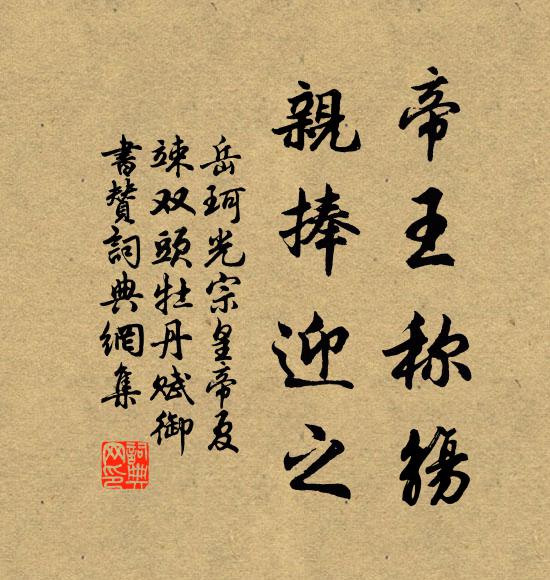 帝王称觞
親捧迎之
岳珂光宗皇帝夏
竦双頭牡丹赋御
書贊詞典網集
詞典网印